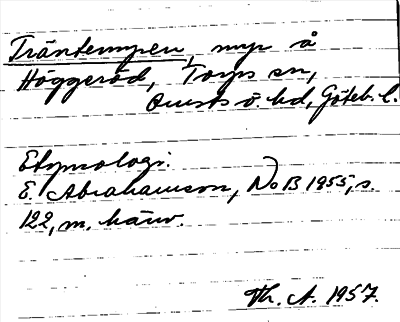 Träntemyren, myr å
Höggeröd, Torps sn,
Orusts ö. hd, Göteb. l.
Etymologi.
E. Abrahamson, NoB 1955, s.
122, m. hänv.
Th. A. 1957.